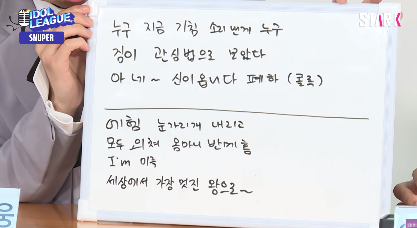 IDOL LEAGUE
SNUPER
STARK
누구 지금 기침 소리 내었는가 누구
짐이 관심법으로 보았다
아 네~ 신이옵니다 폐하 (콜록)
에헴 눈가리개 내리고
모두 외쳐 옴마니 반메홈
I'm 미륵
세상에서 가장 멋진 왕으로~